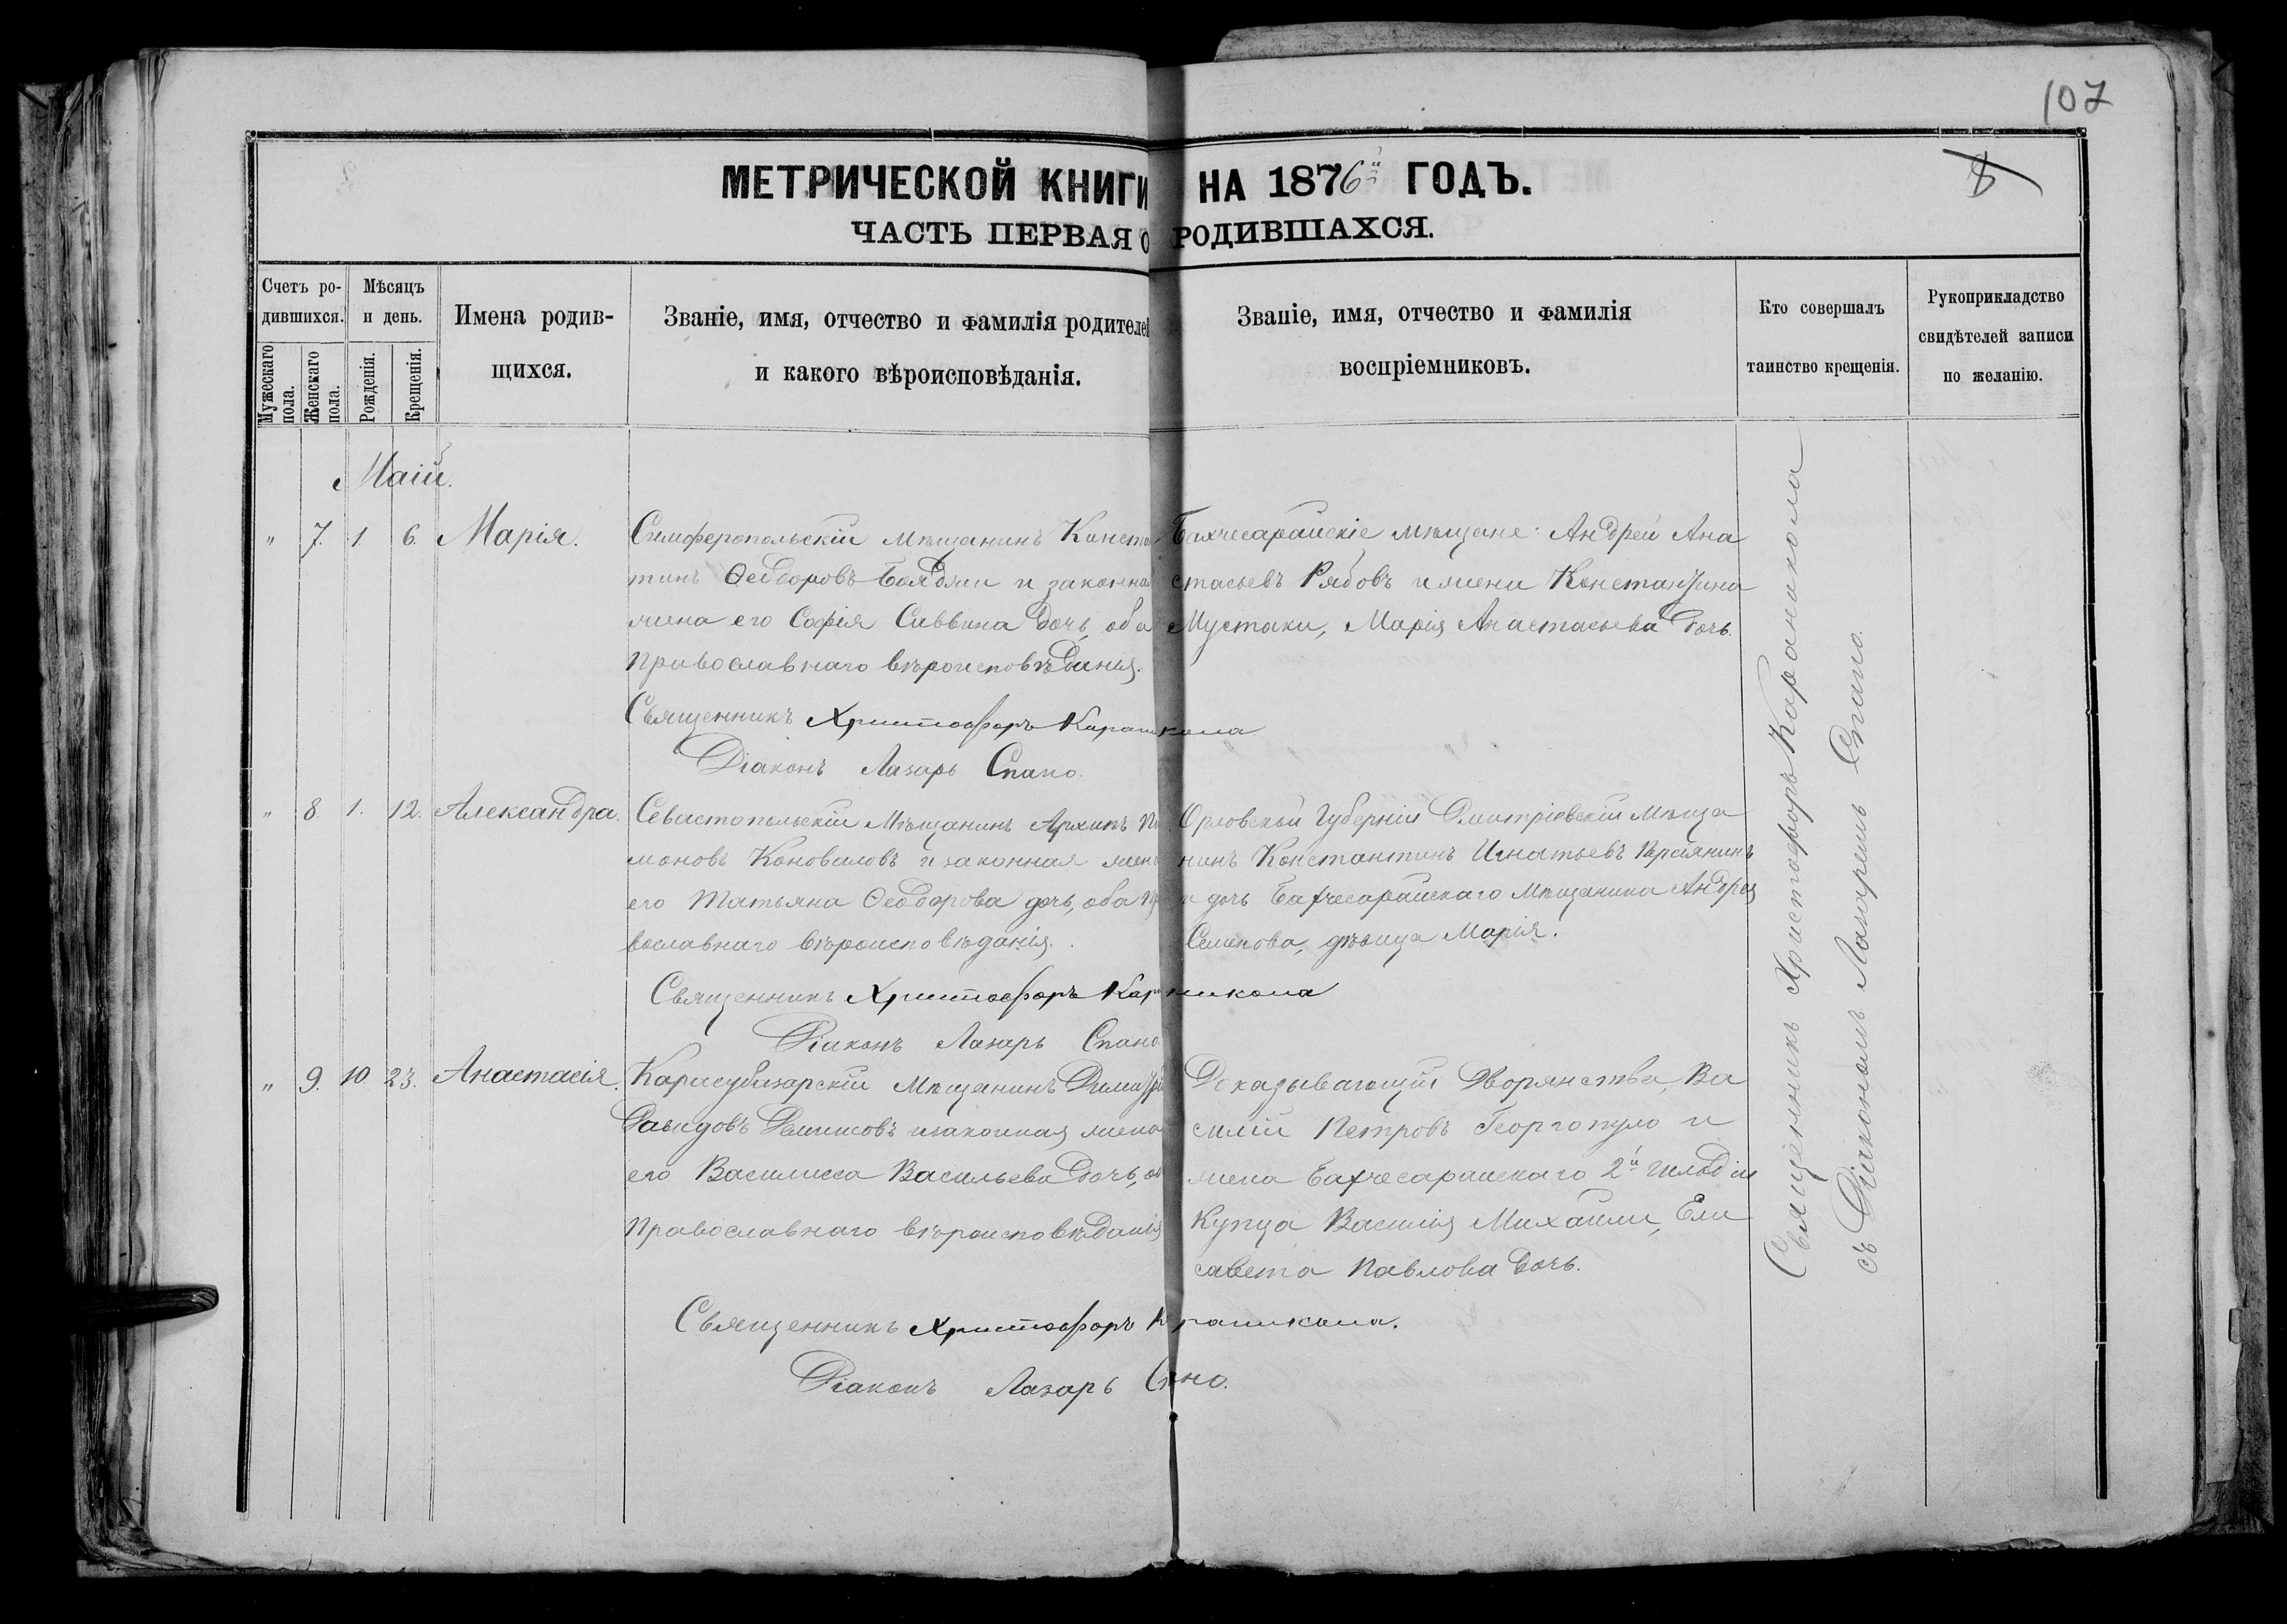 107
8
МЕТРИЧЕСКОЙ КНИГИ НА 1876й ГОДЪ.
ЧАСТЬ ПЕРВАЯ О РОДИВШАХСЯ.
Счетъ ро-
дившихся.
Мужескаго пола.
Женскаго пола.
Мѣсяцъ
и день.
Рожденія.
Крещенія.
Имена родив-
щихся.
Званіе, имя, отчество и фамилія родителей
и какого вѣроисповѣданія.
Званіе, имя, отчество и фамилія
воспріемниковъ.
Кто совершалъ
таинство крещенія.
Рукоприкладство
свидѣтелей записи
по желанію.
Маій.
" 7. 1. 6. Марія.
Симферопольскій Мѣщанинъ Конста
тинъ Ѳеодоровъ и законная
жена его Софія Саввина дочь, оба
Православнаго вѣроисповѣданія.
Священникъ Христофоръ Караникола
Діаконъ Лазарь Спано.
Бахчесарайскіе мѣщане: Андрей Ана
стасьевъ Рябовъ и жена Константина
Мустаки, Марія Анастасьева дочь.
" 8. 1. 12. Александра.
Севастопольскій Мѣщанинъ Архипъ
моновъ Коноваловъ и законная жена
его Татьяна Ѳеодорова дочь, оба Пра
вославнаго вѣроисповѣданія.
Священникъ Христофоръ Караникола
Діаконъ Лазарь Спано
Орловской Губерніи Дмитріевскій Мѣща
нинъ Константинъ Игнатьевъ
и дочь Бахчесарайскаго Мѣщанина Андрея
Семенова, дѣвица Марія.
" 9. 10 23. Анастасія.
Карасубазарскій Мѣщанинъ Димитрій
Давидовъ и законная жена
его Василисса Васильева дочь, об
Православнаго вѣроисповѣданія
Священникъ Христофоръ Караникола.
Діаконъ Лазарь Спано.
Доказывающій Дворянства, Ва
силій Петровъ Георгопуло и
жена Бахчесарайскаго 2й гильдіи
Купца Василія Михайли, Ели
савета Павлова дочь.
Священникъ Христофоръ Караникола
съ Діакономъ Лазаремъ Спано.